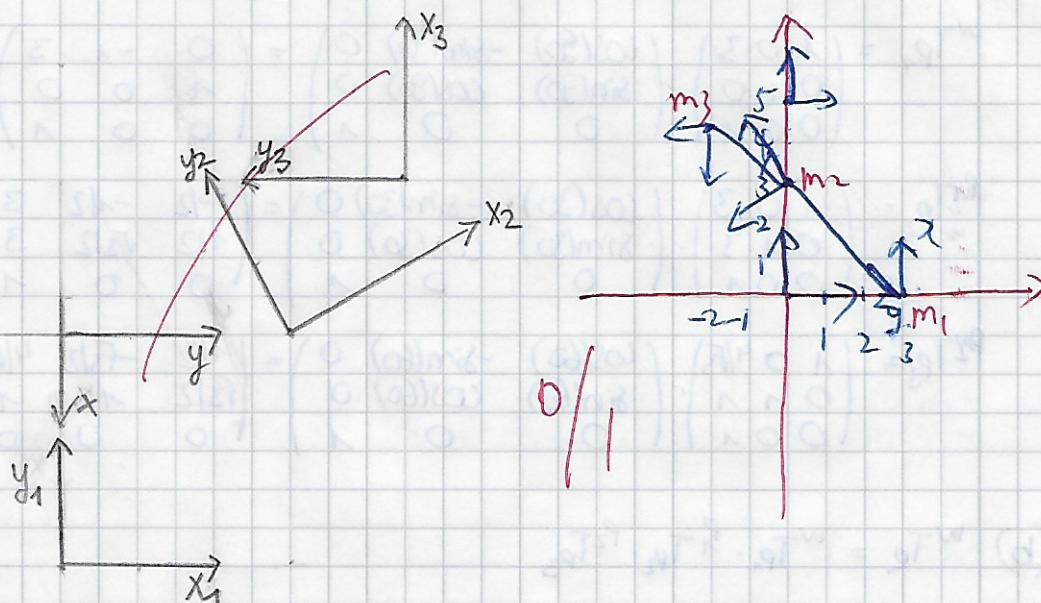 x3
y2
y3
x2
y
x
y1
x1
m3
5
3
m2
2
1
x
-2 -1
1
2
y
3
m1
0/1